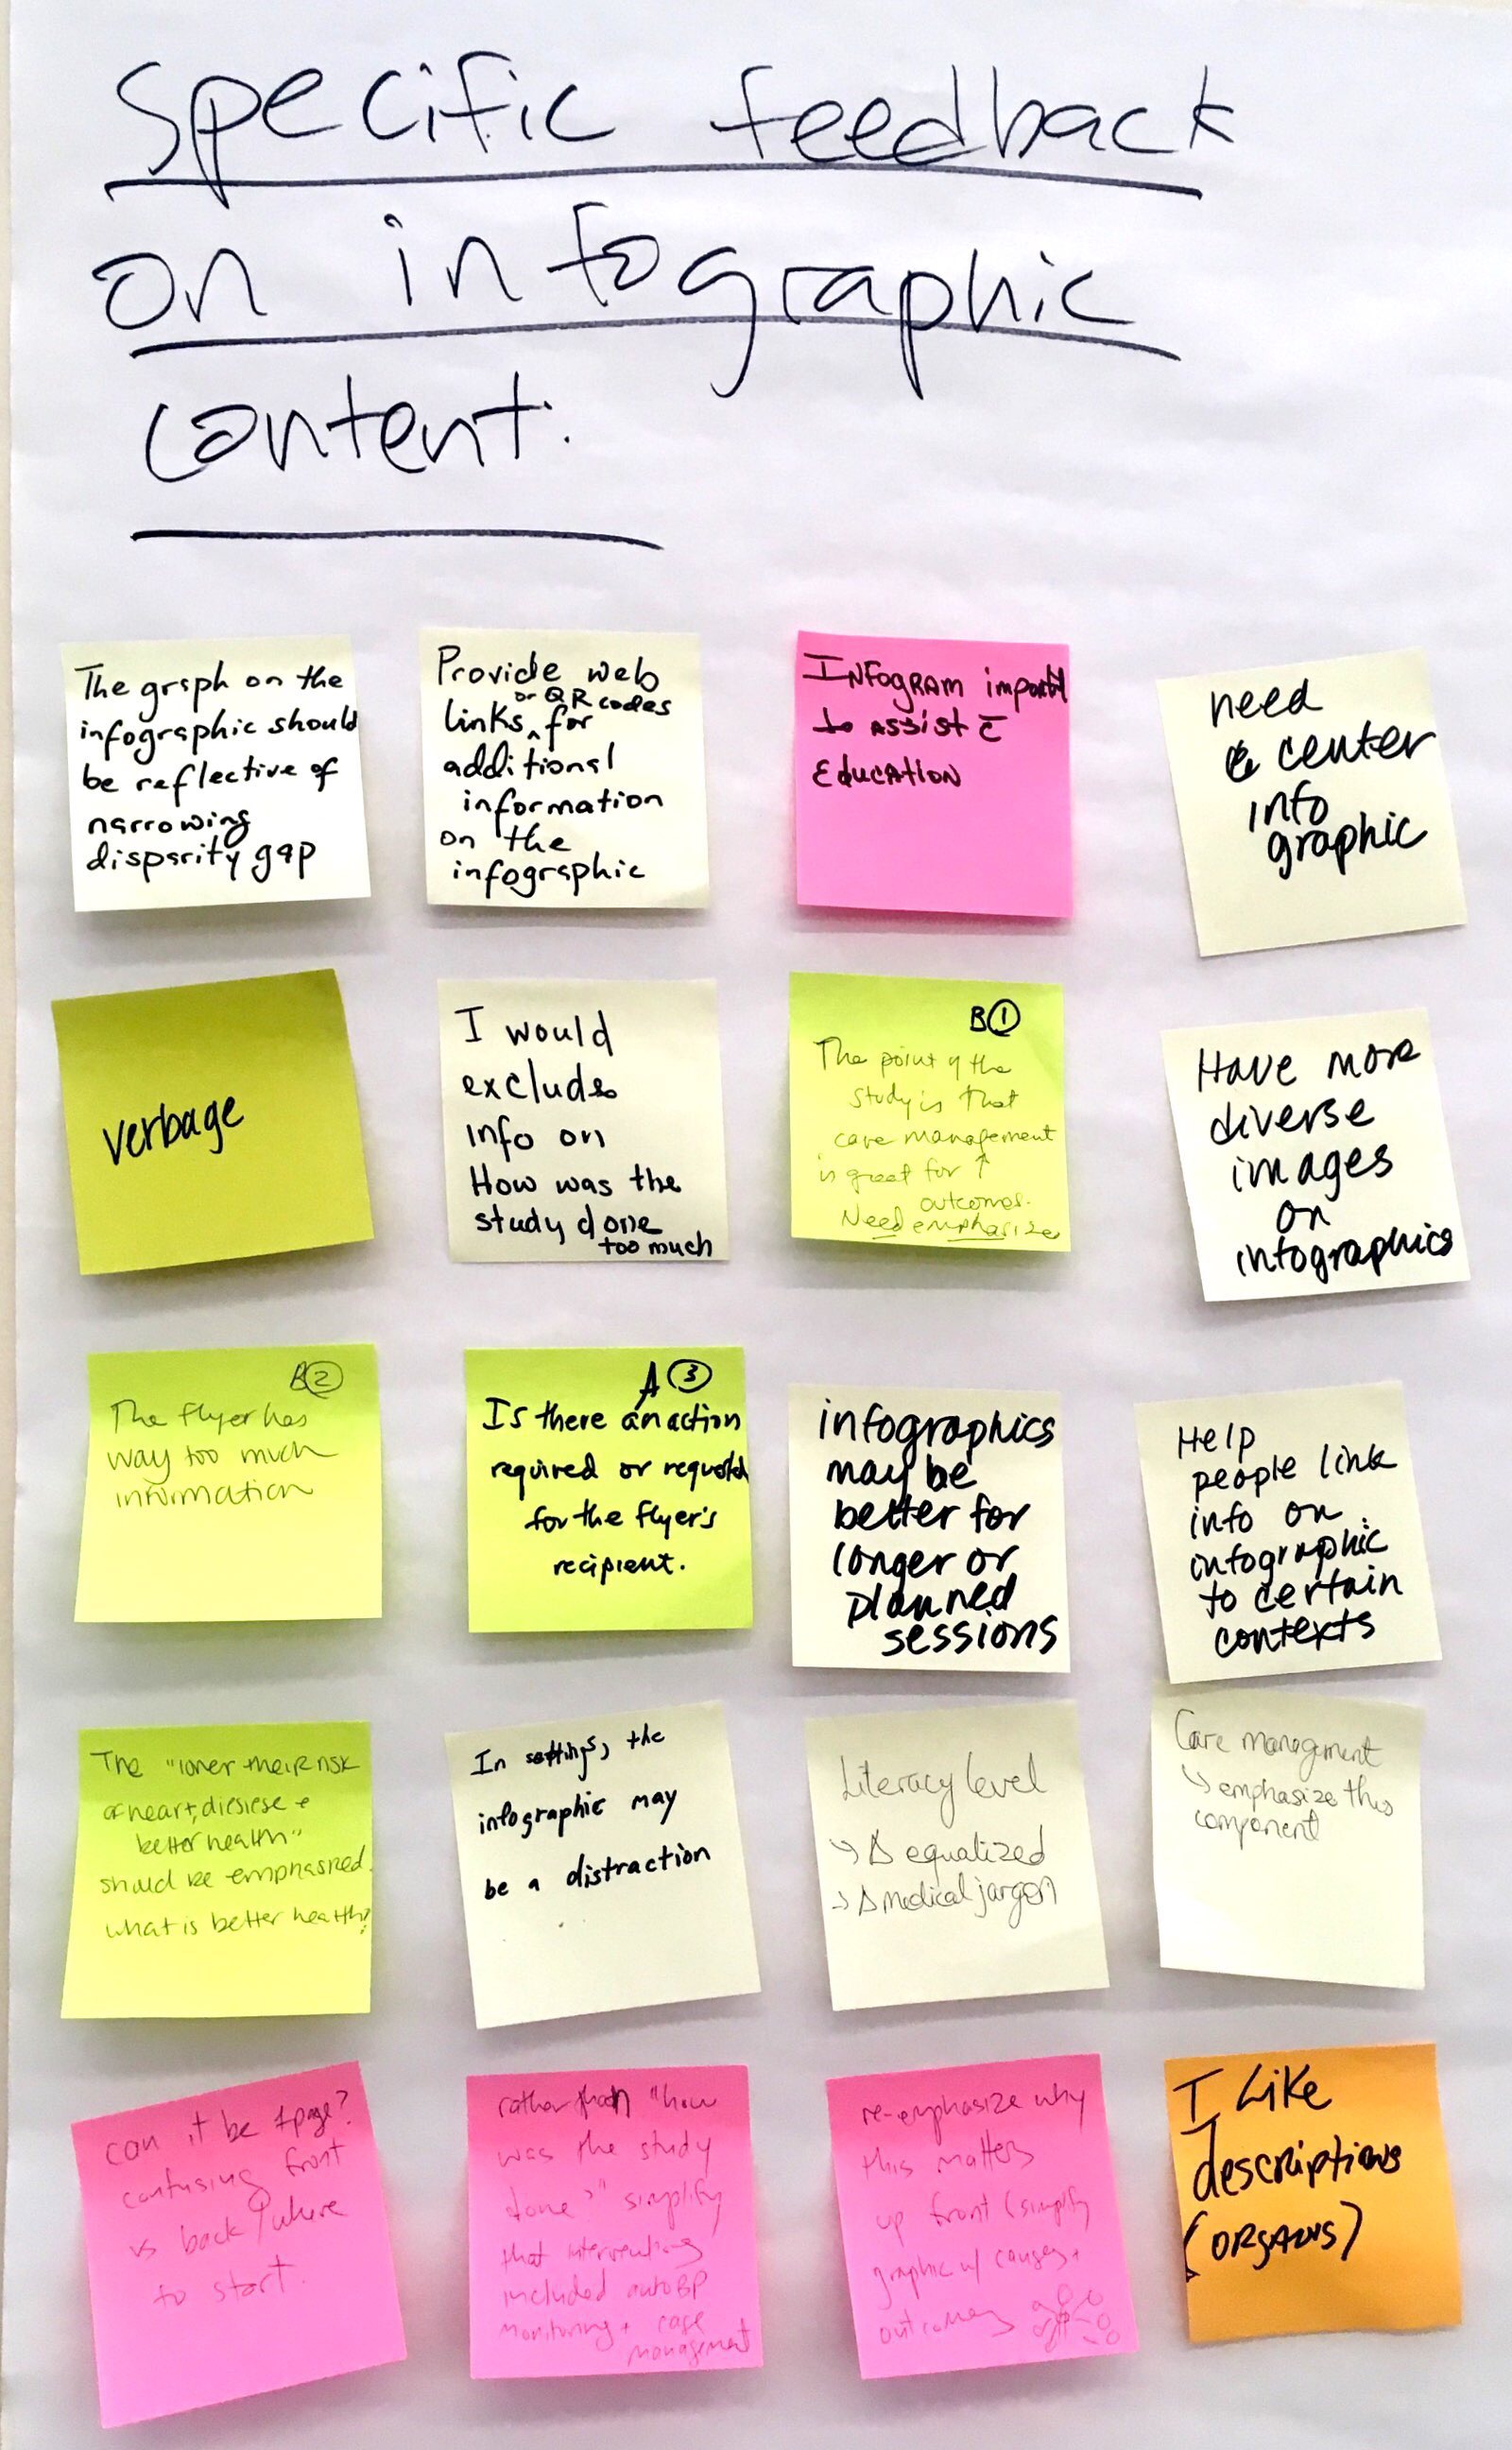 Specific feedback
on infographic
content:
The graph on the
infographic should
be reflective of
narrowing
disparity gap
Provide web
or QR codes
links, for
additional
information
on the
infographic
INFOGRAM
to ASSIST c̄
EDUCATION
need
center
info
graphic
verbage
I would
exclude
info on
How was the
study done
too much
B①
The point of the
study is that
care management
is great for ↑
outcomes.
Need emphasize
Have more
diverse
images
on
infographics
B②
The flyer has
way too much
information
A③
Is there an action
required or
for the flyer's
recipient.
infographics
may be
better for
longer or
planned
sessions
Help
people link
info on
infographic
to certain
contexts
The "lower their risk
of heart, +
better health"
should be emphasized.
what is better health?
In settings, the
infographic may
be a distraction
Literacy level
↳ Δ equalized
→ Δ medical jargon
Care managment
↳ emphasize this
component
can it be 1 page?
confusing front
vs back / where
to start.
rather than "how
was the study
done?" simplify
that
included auto BP
monitoring + case
management
re-emphasize why
this matters
up front (simplify
graphic w/ causes +
outcomes
I Like
descriptions
(ORGANS)